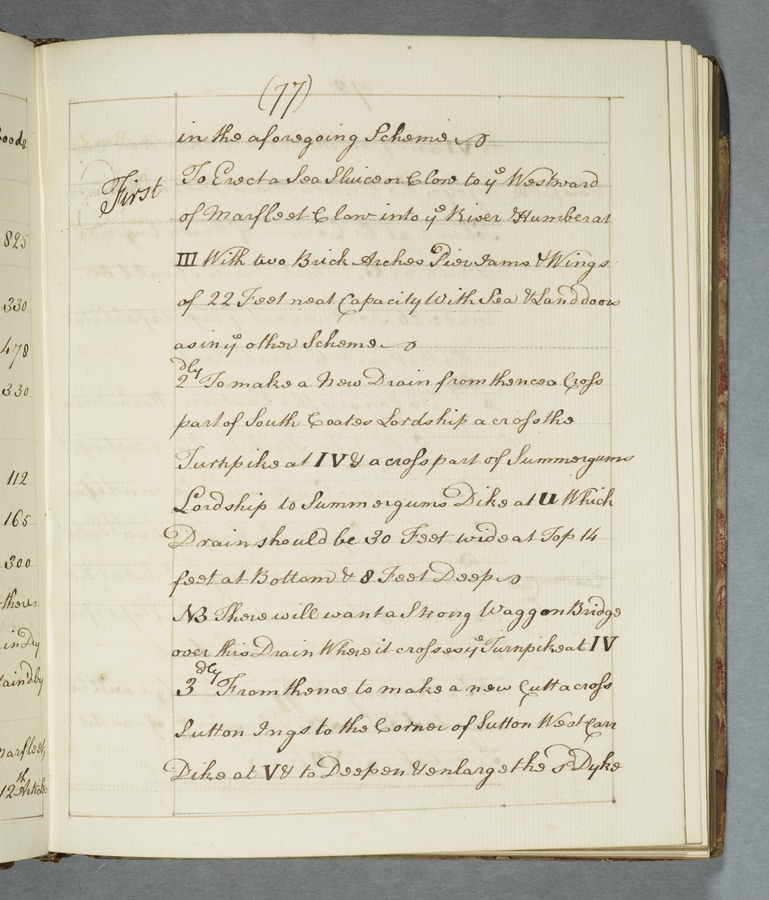 (77)
in the aforegoing Scheme
First
To Erect a Sea Sluice or Clow to yᵉ Westward
of Marfleet Clow into yᵉ River Humber at
III With two Brick Arches Pier Jams & Wings
of 22 Feet neat Capacity With Sea & Land doors
as in yᵉ other Scheme
2dly To make a New Drain from thence a Cross
part of South Coates Lordship a cross the
Turnpike at IV & a cross part of Summergums
Lordship to Summergums Dike at U Which
Drain should be 30 Feet wide at Top 14
feet at Bottom & 8 Feet Deep
NB There will want a Strong Waggon Bridge
over this Drain Where it crosses yᵉ Turnpike at IV
3dly From thence to make a new Cutt across
Sutton Ings to the Corner of Sutton West Carr
Dike at V & to Deepen & enlarge the sᵈ Dyke
825
330
478
330
112
165
300
12th